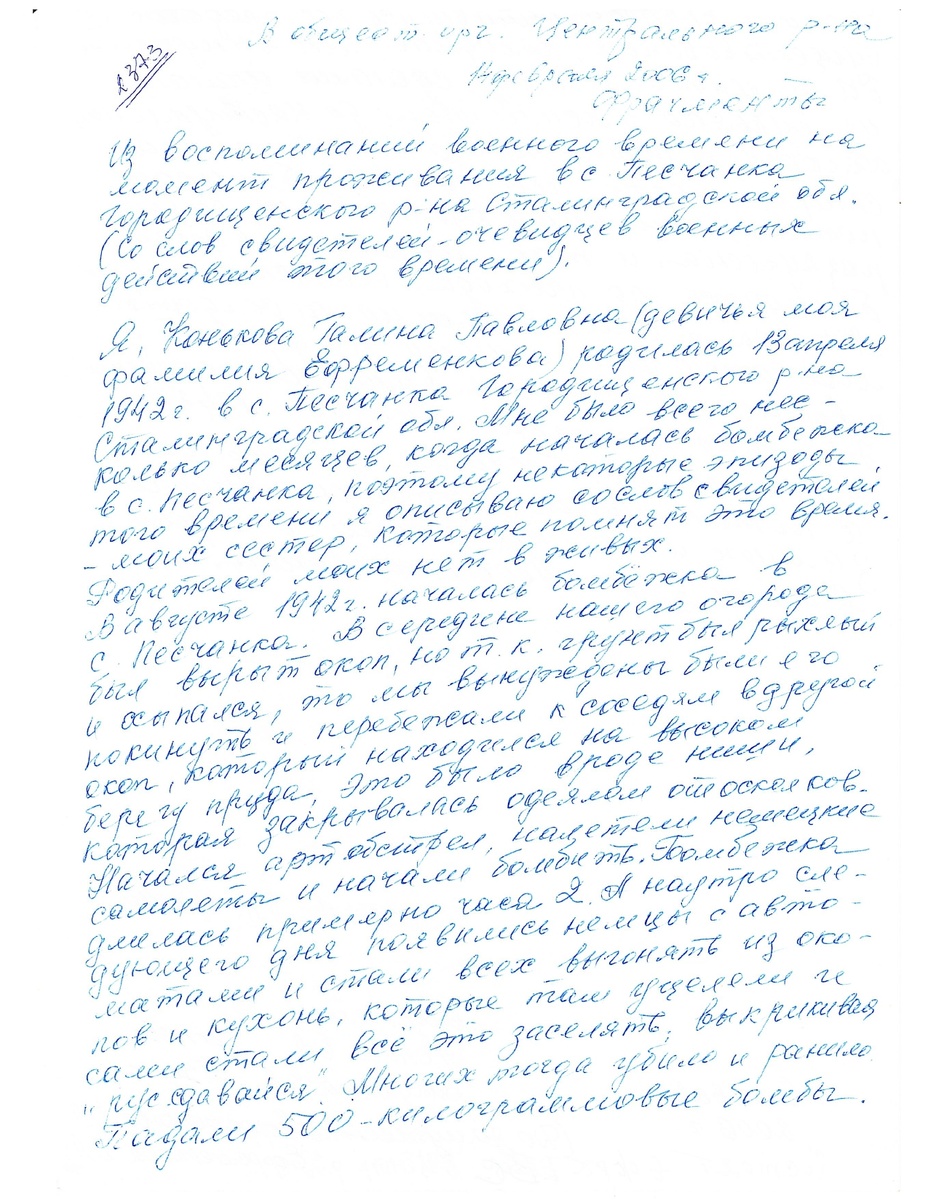 В общест. орг. Центрального р-на
2373
февраля 2006 г.
Фрагменты
Из воспоминаний военного времени на
момент проживания в с. Песчанка
Городищенского р-на Сталинградской обл.
(Со слов свидетелей-очевидцев военных
действий этого времени).
Я, Конькова Галина Павловна (девичья моя
фамилия Ефременкова) родилась 13 апреля
1942 г. в с. Песчанка Городищенского р-на
Сталинградской обл. Мне было всего нес-
колько месяцев, когда началась бомбежка
в с. Песчанка, поэтому некоторые эпизоды
того времени я описываю со слов свидетелей
- моих сестер, которые помнят это время.
Родителей моих нет в живых.
В августе 1942 г. началась бомбёжка в
с. Песчанка. В середине нашего огорода
был вырыт окоп, но т.к. грунт был рыхлый
и осыпался, то мы вынуждены были его
покинуть и перебежали к соседям в другой
окоп, который находился на высоком
берегу пруда, это было вроде ниши,
которая закрывалась одеялом от осколков.
Начался артобстрел, налетели немецкие
самолеты и начали бомбить. Бомбежка
длилась примерно часа 2. А наутро сле-
дующего дня появились немцы с авто-
матами и стали всех выгонять из око-
пов и кухонь, которые там уцелели и
сами стали всё это заселять, выкрикивая
"рус сдавайся". Многих тогда убило и ранило.
Падали 500-килограммовые бомбы.